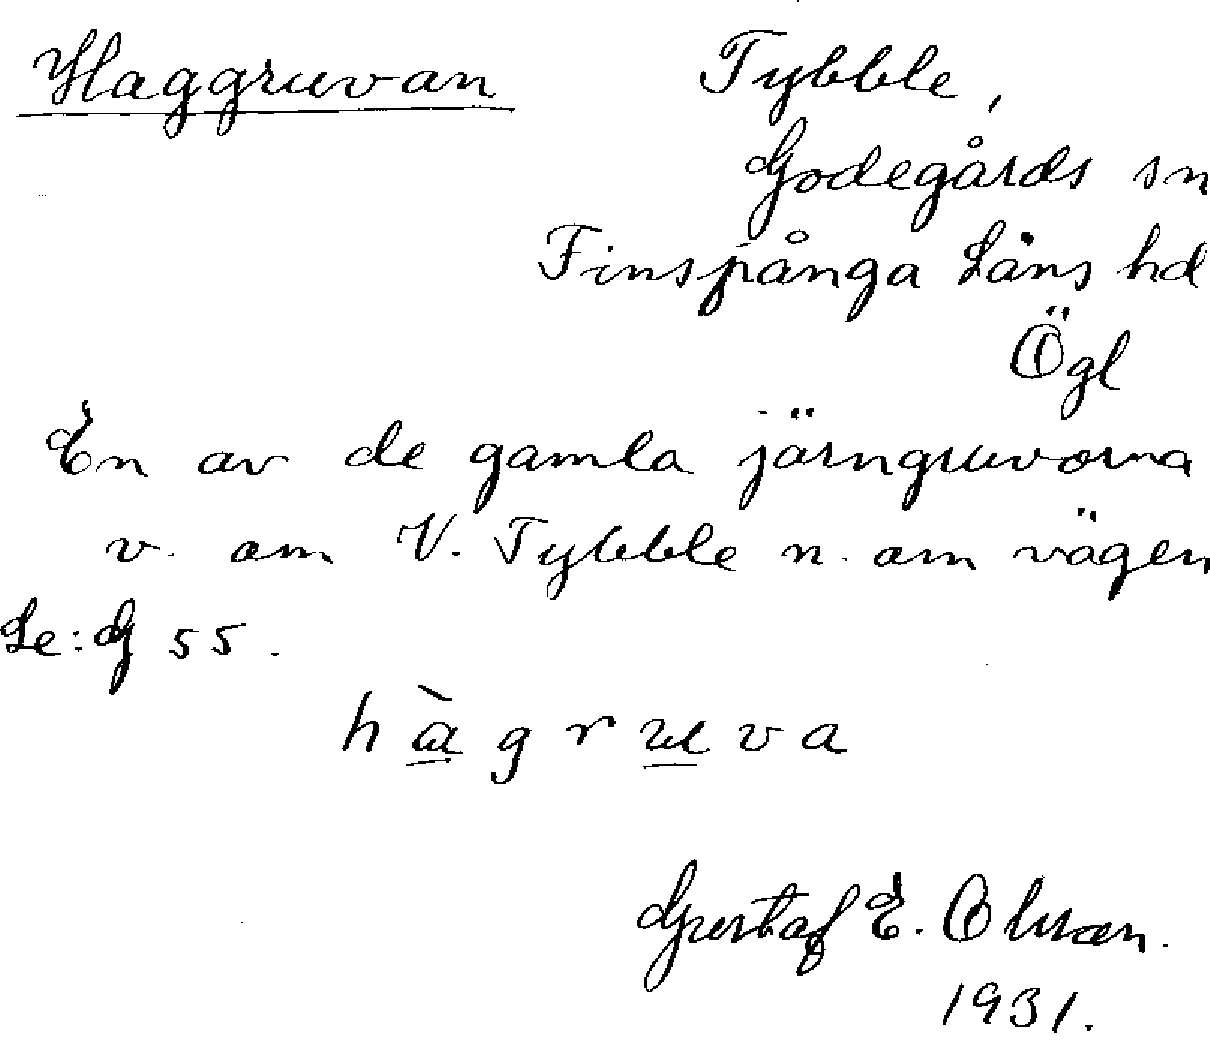 Haggruvan Tybble,
Godegårds sn
Finspånga Läns hd
Ögl
En av de gamla järngruvorna
v. om V. Tybble n. om vägen
Le: G 55.
hàgruva
Gustaf E. Olsson.
1931.